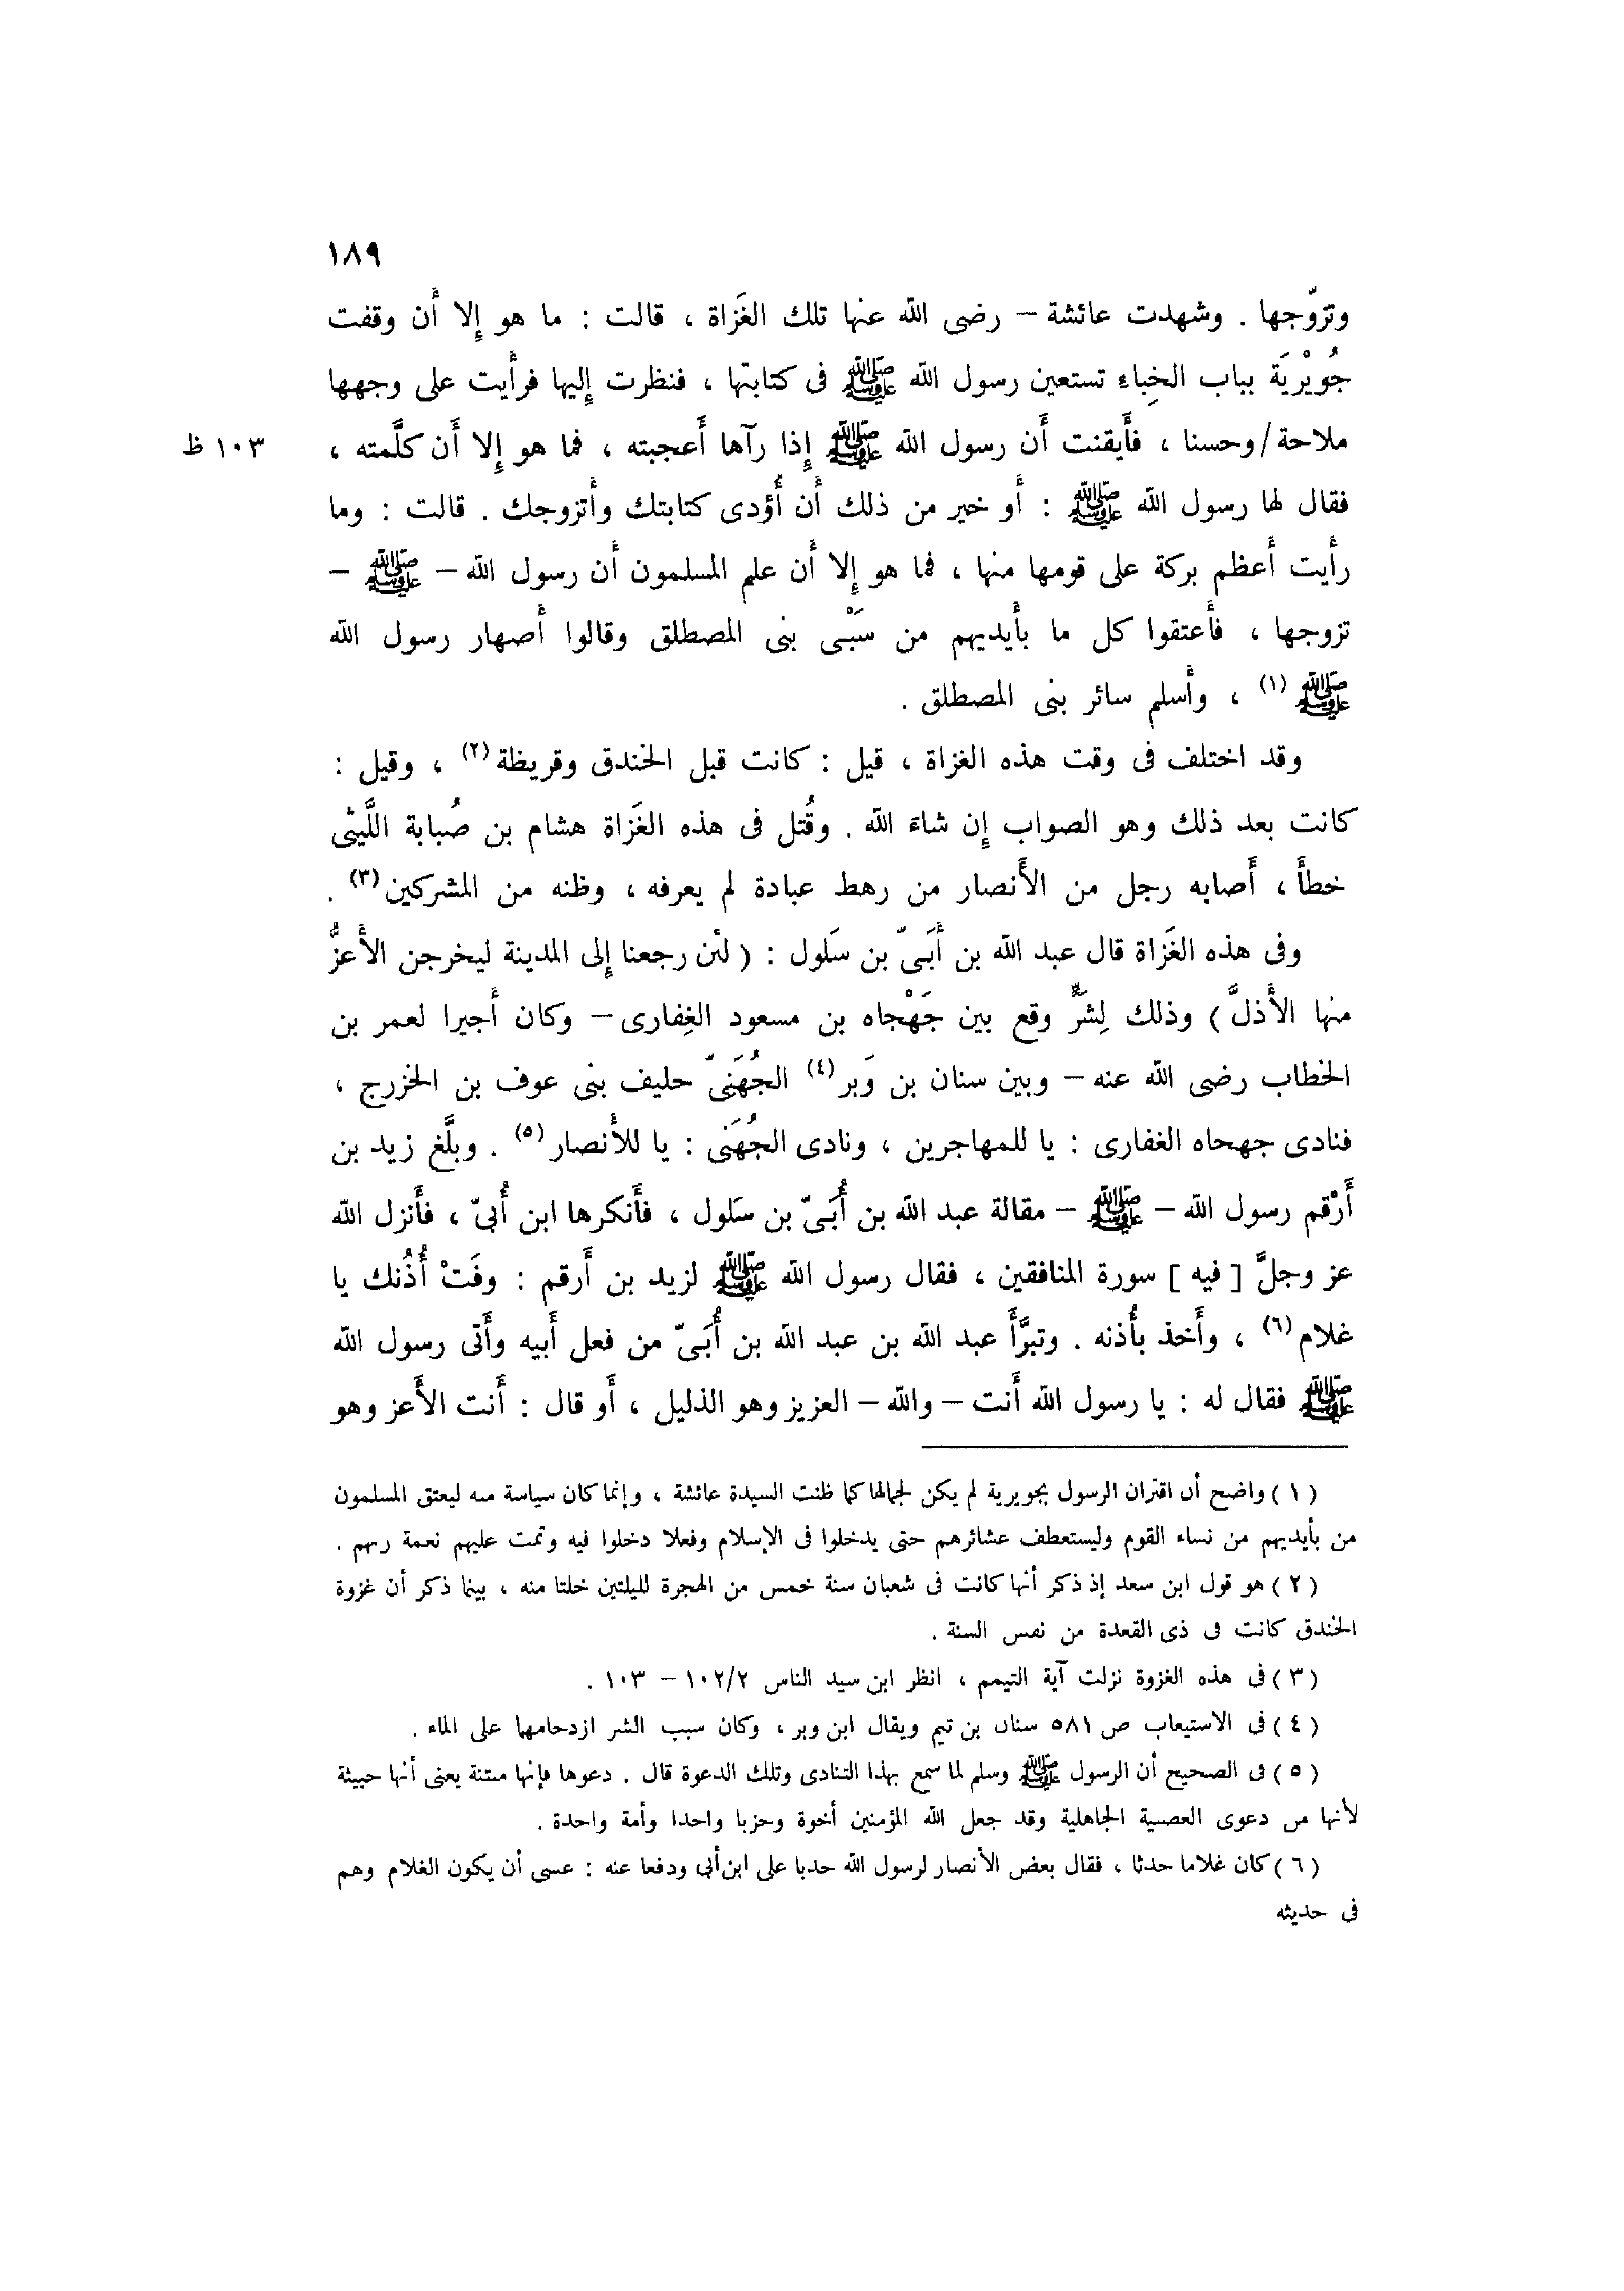 ١٨٩
وتزوّجها . وشهدت عائشة – رضى الله عنها تلك الغَزاة ، قالت : ما هو إلا أن وقفت
جُويْرِيَة بباب الخِباءِ تستعين رسول الله ﷺ فى كتابتها ، فنظرت إليها فرأيت على وجهها
ملاحة/وحسنا ، فأَيقنت أَن رسول الله ﷺ إذا رآها أَعجبته ، فما هو إلا أَن كلَّمته ،
١٠٣ ظ
فقال لها رسول الله ﷺ : أَو خير من ذلك أَن أُؤدى كتابتك وأَتزوجك . قالت : وما
رأَيت أَعظم بركة على قومها منها ، فما هو إلا أَن علم المسلمون أَن رسول الله – ﷺ –
تزوجها ، فأَعتقوا كل ما بأَيديهم من سَبْى بنى المصطلق وقالوا أَصهار رسول الله
ﷺ (١) ، وأَسلم سائر بنى المصطلق .
وقد اختلف فى وقت هذه الغزاة ، قيل : كانت قبل الخندق وقريظة (٢) ، وقيل :
كانت بعد ذلك وهو الصواب إن شاءَ الله . وقُتل فى هذه الغَزاة هشام بن صُبابة اللَّيثى
خطأَ ، أَصابه رجل من الأَنصار من رهط عبادة لم يعرفه ، وظنه من المشركين (٣) .
وفى هذه الغَزاة قال عبد الله بن أُبَىّ بن سَلول : ( لئن رجعنا إلى المدينة ليخرجن الأَعزُّ
منها الأَذلَّ ) وذلك لِشَرٍّ وقع بين جَهْجاه بن مسعود الغِفارى – وكان أَجيرا لعمر بن
الخطاب رضى الله عنه – وبين سنان بن وَبر (٤) الجُهَنىّ حليف بنى عوف بن الخزرج ،
فنادى جهجاه الغفارى : يا للمهاجرين ، ونادى الجُهَنى : يا للأَنصار (٥) . وبلَّغ زيد بن
أَرْقم رسول الله – ﷺ – مقالة عبد الله بن أُبَىّ بن سَلول ، فأَنكرها ابن أُبىّ ، فأَنزل الله
عز وجلَّ [ فيه ] سورة المنافقين ، فقال رسول الله ﷺ لزيد بن أَرقم : وفَتْ أُذُنك يا
غلام (٦) ، وأَخذ بأُذنه . وتبرَّأَ عبد الله بن عبد الله بن أُبَىّ من فعل أَبيه وأَتى رسول الله
ﷺ فقال له : يا رسول الله أَنت – والله – العزيز وهو الذليل ، أَو قال : أَنت الأَعز وهو
( ١ ) واضح أن اقتران الرسول بجويرية لم يكن لجمالها كما ظنت السيدة عائشة ، وإنما كان سياسة منه ليعتق المسلمون
من بأيديهم من نساء القوم وليستعطف عشائرهم حتى يدخلوا فى الإسلام وفعلا دخلوا فيه وتمت عليهم نعمة ربهم .
( ٢ ) هو قول ابن سعد إذ ذكر أنها كانت فى شعبان سنة خمس من الهجرة لليلتين خلتا منه ، بينما ذكر أن غزوة
الخندق كانت فى ذى القعدة من نفس السنة .
( ٣ ) فى هذه الغزوة نزلت آية التيمم ، انظر ابن سيد الناس ١٠٢/٢ – ١٠٣ .
( ٤ ) فى الاستيعاب ص ٥٨١ سنان بن تيم ويقال ابن وبر ، وكان سبب الشر ازدحامهما على الماء .
( ٥ ) فى الصحيح أن الرسول ﷺ وسلم لما سمع بهذا التنادى وتلك الدعوة قال . دعوها فإنها منتنة يعنى أنها خبيثة
لأنها من دعوى العصبية الجاهلية وقد جعل الله المؤمنين أخوة وحزبا واحدا وأمة واحدة .
( ٦ ) كان غلاما حدثا ، فقال بعض الأنصار لرسول الله حدبا على ابن أبى ودفعا عنه : عسى أن يكون الغلام وهم
فى حديثه